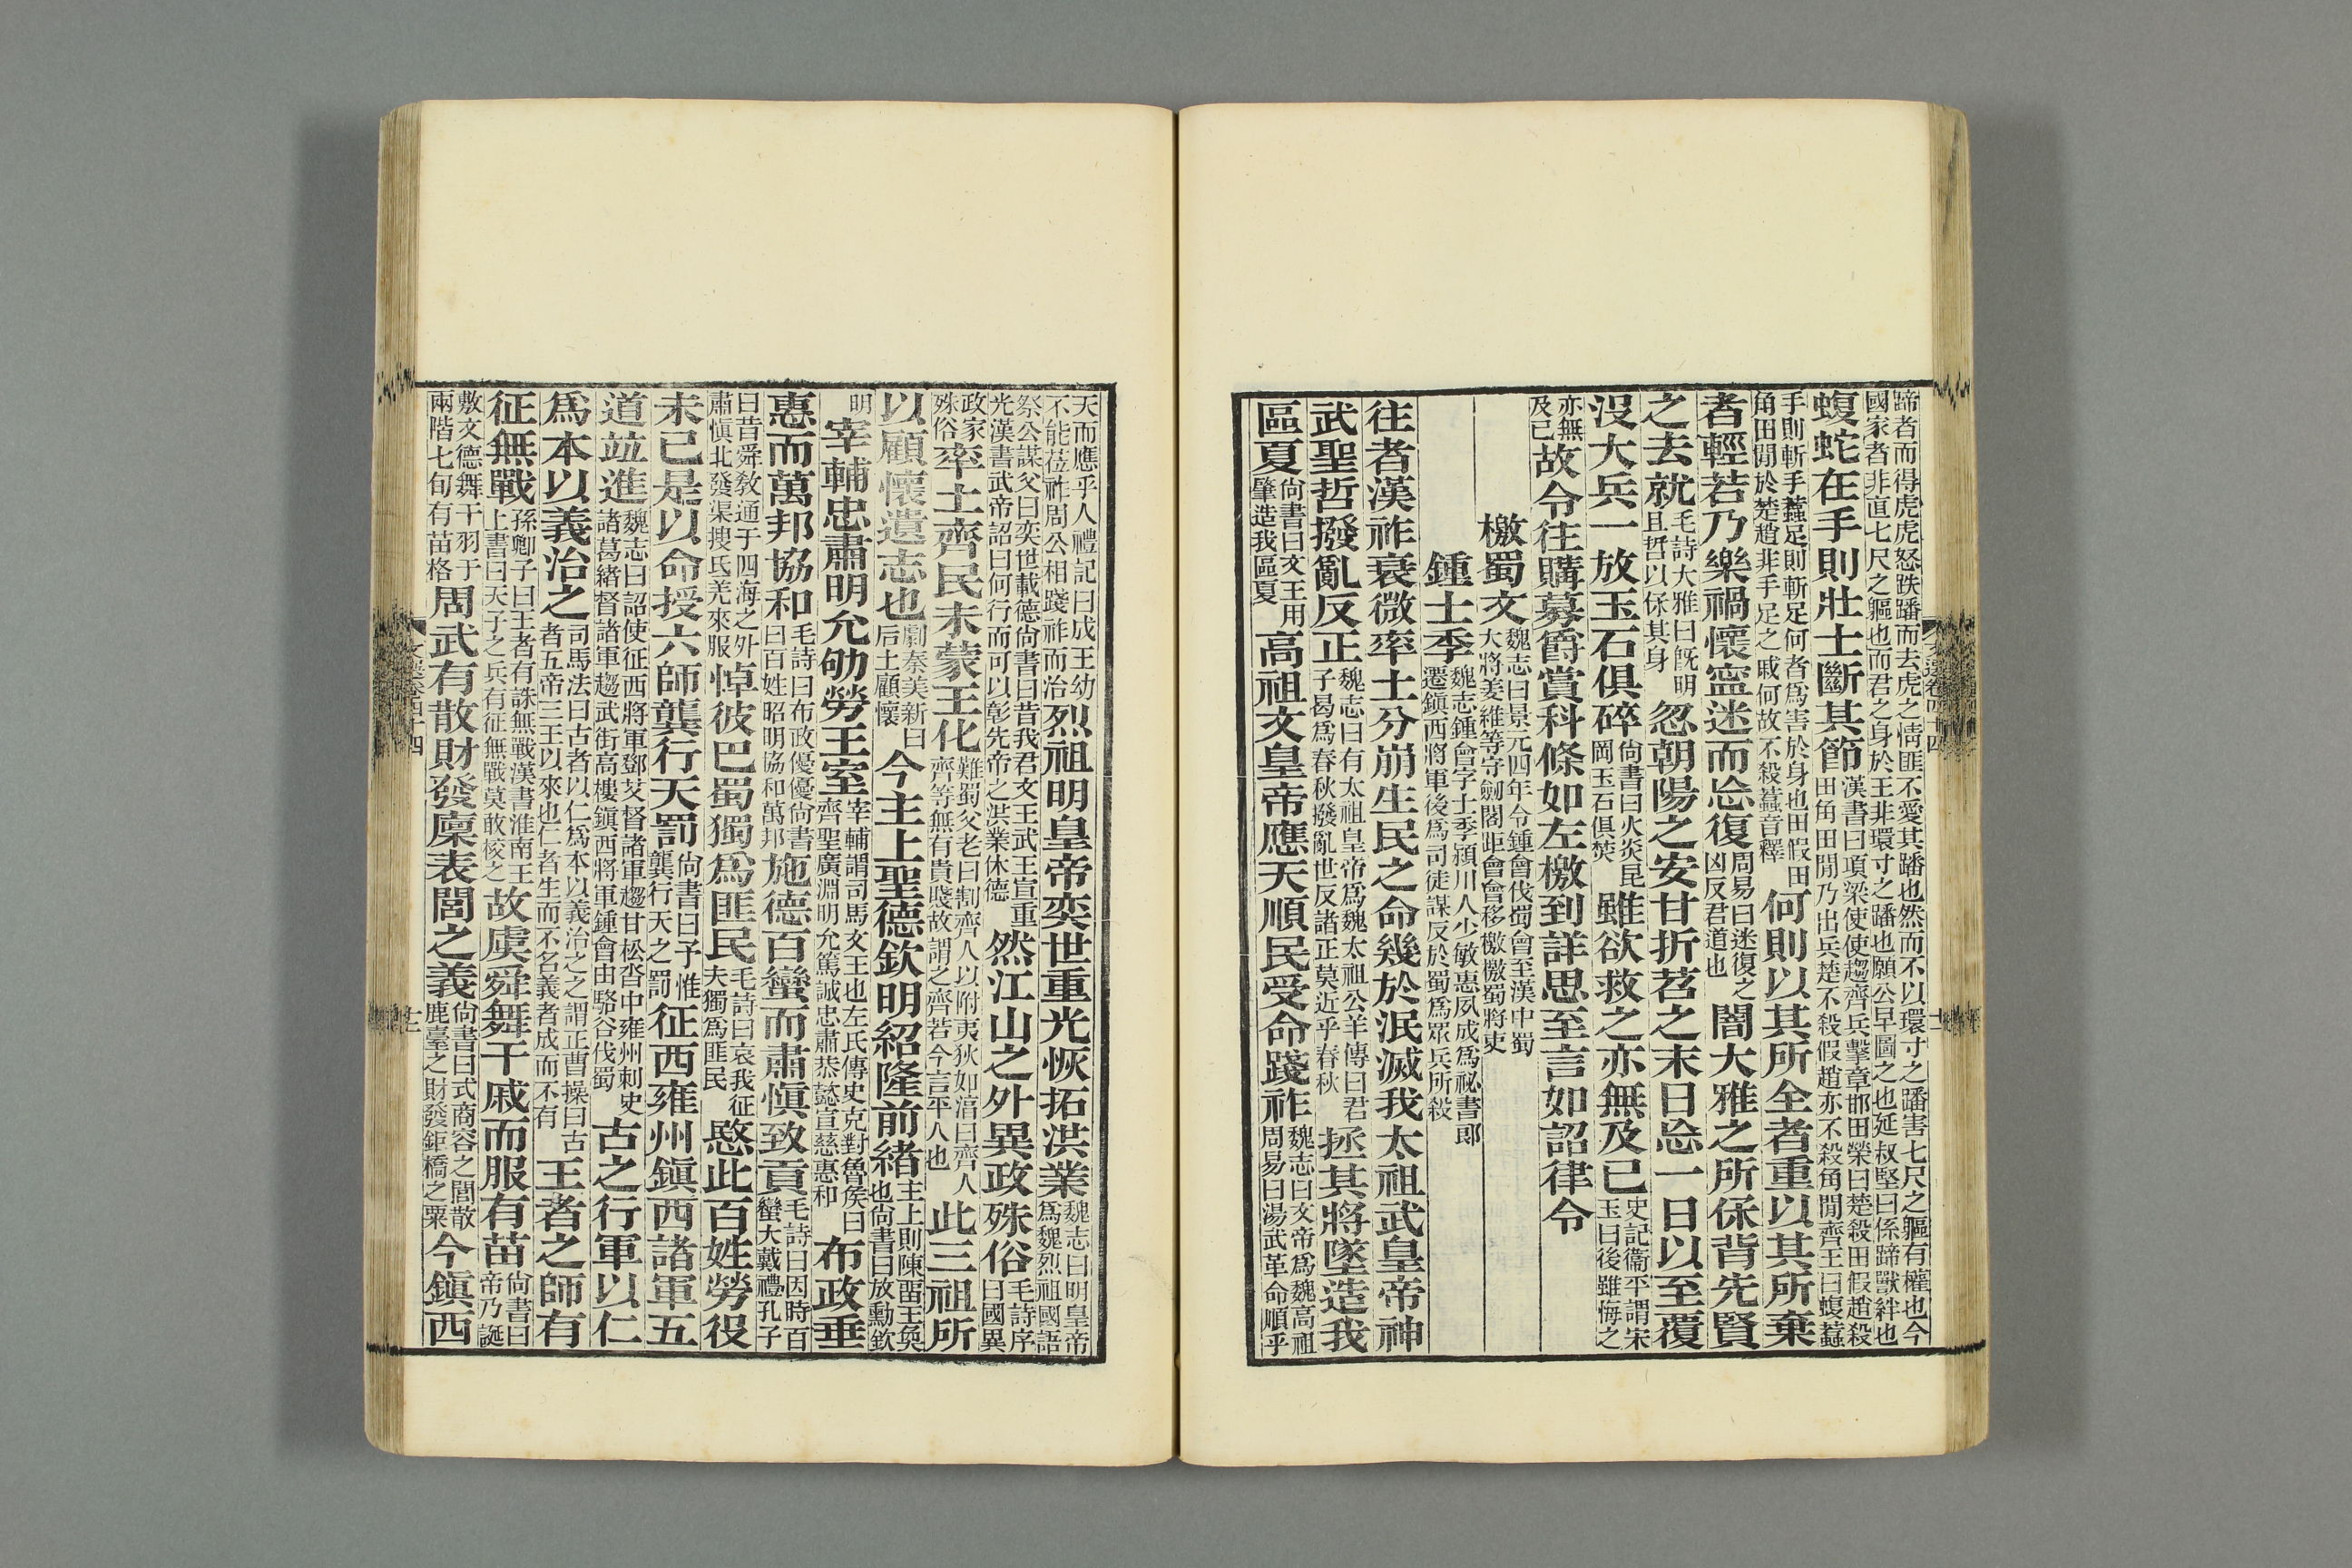 蹄者而得虎虎怒跌蹯而去虎之情匪不愛其蹯也然而不以環寸之蹯害七尺之軀有權也今
國家者非直七尺之軀也而君之身於王非環寸之蹯也願公早圖之也延叔堅曰係蹄獸絆也
蝮蛇在手則壯士斷其節漢書曰項梁使使趨齊兵擊章邯田榮曰楚殺田假趙殺田角田閒乃出兵楚不殺假趙亦不殺角閒齊王曰蝮蠚
手則斬手蠚足則斬足何者爲害於身也田假田角田閒於楚趙非手足之戚何故不殺蠚音釋何則以其所全者重以其所棄
者輕若乃樂禍懷寍迷而忘復周易曰迷復之凶反君道也闇大雅之所保背先賢
之去就毛詩大雅曰旣明且哲以保其身忽朝陽之安甘折苕之末日忘一日以至覆
沒大兵一放玉石俱碎尙書曰火炎昆岡玉石俱焚雖欲救之亦無及已史記衞平謂宋玉曰後雖悔之
亦無及已故令往購募爵賞科條如左檄到詳思至言如詔律令
檄蜀文魏志曰景元四年令鍾會伐蜀會至漢中蜀大將姜維等守劒閣距會會移檄檄蜀將吏
鍾士季魏志鍾會字士季潁川人少敏惠夙成爲祕書郎遷鎭西將軍後爲司徒謀反於蜀爲眾兵所殺
往者漢祚衰微率土分崩生民之命幾於泯滅我太祖武皇帝神
武聖哲撥亂反正魏志曰有太祖皇帝爲魏太祖公羊傳曰君子曷爲春秋撥亂世反諸正莫近乎春秋拯其將墜造我
區夏尙書曰文王用肇造我區夏高祖文皇帝應天順民受命踐祚魏志曰文帝爲魏高祖周易曰湯武革命順乎
天而應乎人禮記曰成王幼不能莅祚周公相踐祚而治烈祖明皇帝奕世重光恢拓洪業魏志曰明皇帝爲魏烈祖國語
祭公謀父曰奕世載德尙書曰昔我君文王武王宣重光漢書武帝詔曰何行而可以彰先帝之洪業休德然江山之外異政殊俗毛詩序曰國異
政家殊俗率土齊民未蒙王化難蜀父老曰割齊人以附夷狄如淳曰齊人齊等無有貴賤故謂之齊若今言平人也此三祖所
以顧懷遺志也劇秦美新曰后土顧懷今主上聖德欽明紹隆前緒主上則陳畱王奐也尙書曰放勳欽
明宰輔忠肅明允劬勞王室宰輔謂司馬文王也左氏傳史克對魯侯曰齊聖廣淵明允篤誠忠肅恭懿宣慈惠和布政垂
惠而萬邦協和毛詩曰布政優優尙書曰百姓昭明協和萬邦施德百蠻而肅愼致貢毛詩曰因時百蠻大戴禮孔子
曰昔舜敎通于四海之外肅愼北發渠搜氐羌來服悼彼巴蜀獨爲匪民毛詩曰哀我征夫獨爲匪民愍此百姓勞役
未已是以命授六師龔行天罰尙書曰予惟龔行天之罰征西雍州鎭西諸軍五
道竝進魏志曰詔使征西將軍鄧艾督諸軍趨甘松沓中雍州刺史諸葛緒督諸軍趨武街高樓鎭西將軍鍾會由駱谷伐蜀古之行軍以仁
爲本以義治之司馬法曰古者以仁爲本以義治之之謂正曹操曰古者五帝三王以來也仁者生而不名義者成而不有王者之師有
征無戰孫卿子曰王者有誅無戰漢書淮南王上書曰天子之兵有征無戰莫敢校之故虞舜舞干戚而服有苗尙書曰帝乃誕
敷文德舞干羽于兩階七旬有苗格周武有散財發廩表閭之義尙書曰式商容之閭散鹿臺之財發鉅橋之粟今鎭西